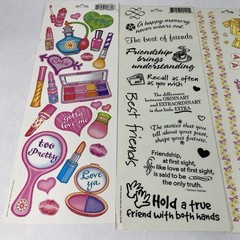 Cutie
gotta
love me
too
Pretty
Love
ya.
A happy memory
never wears out.
The best of friends
Friendship
brings
understanding
Recall as often
as you wish
The difference
between ORDINARY
and EXTRAORDINARY
is that little EXTRA
Best friends
The stories that you
tell about your past,
shape your future.
Friendship,
at first sight,
like love at first sight,
is said to be
the only truth.
Hold a true
friend with both hands